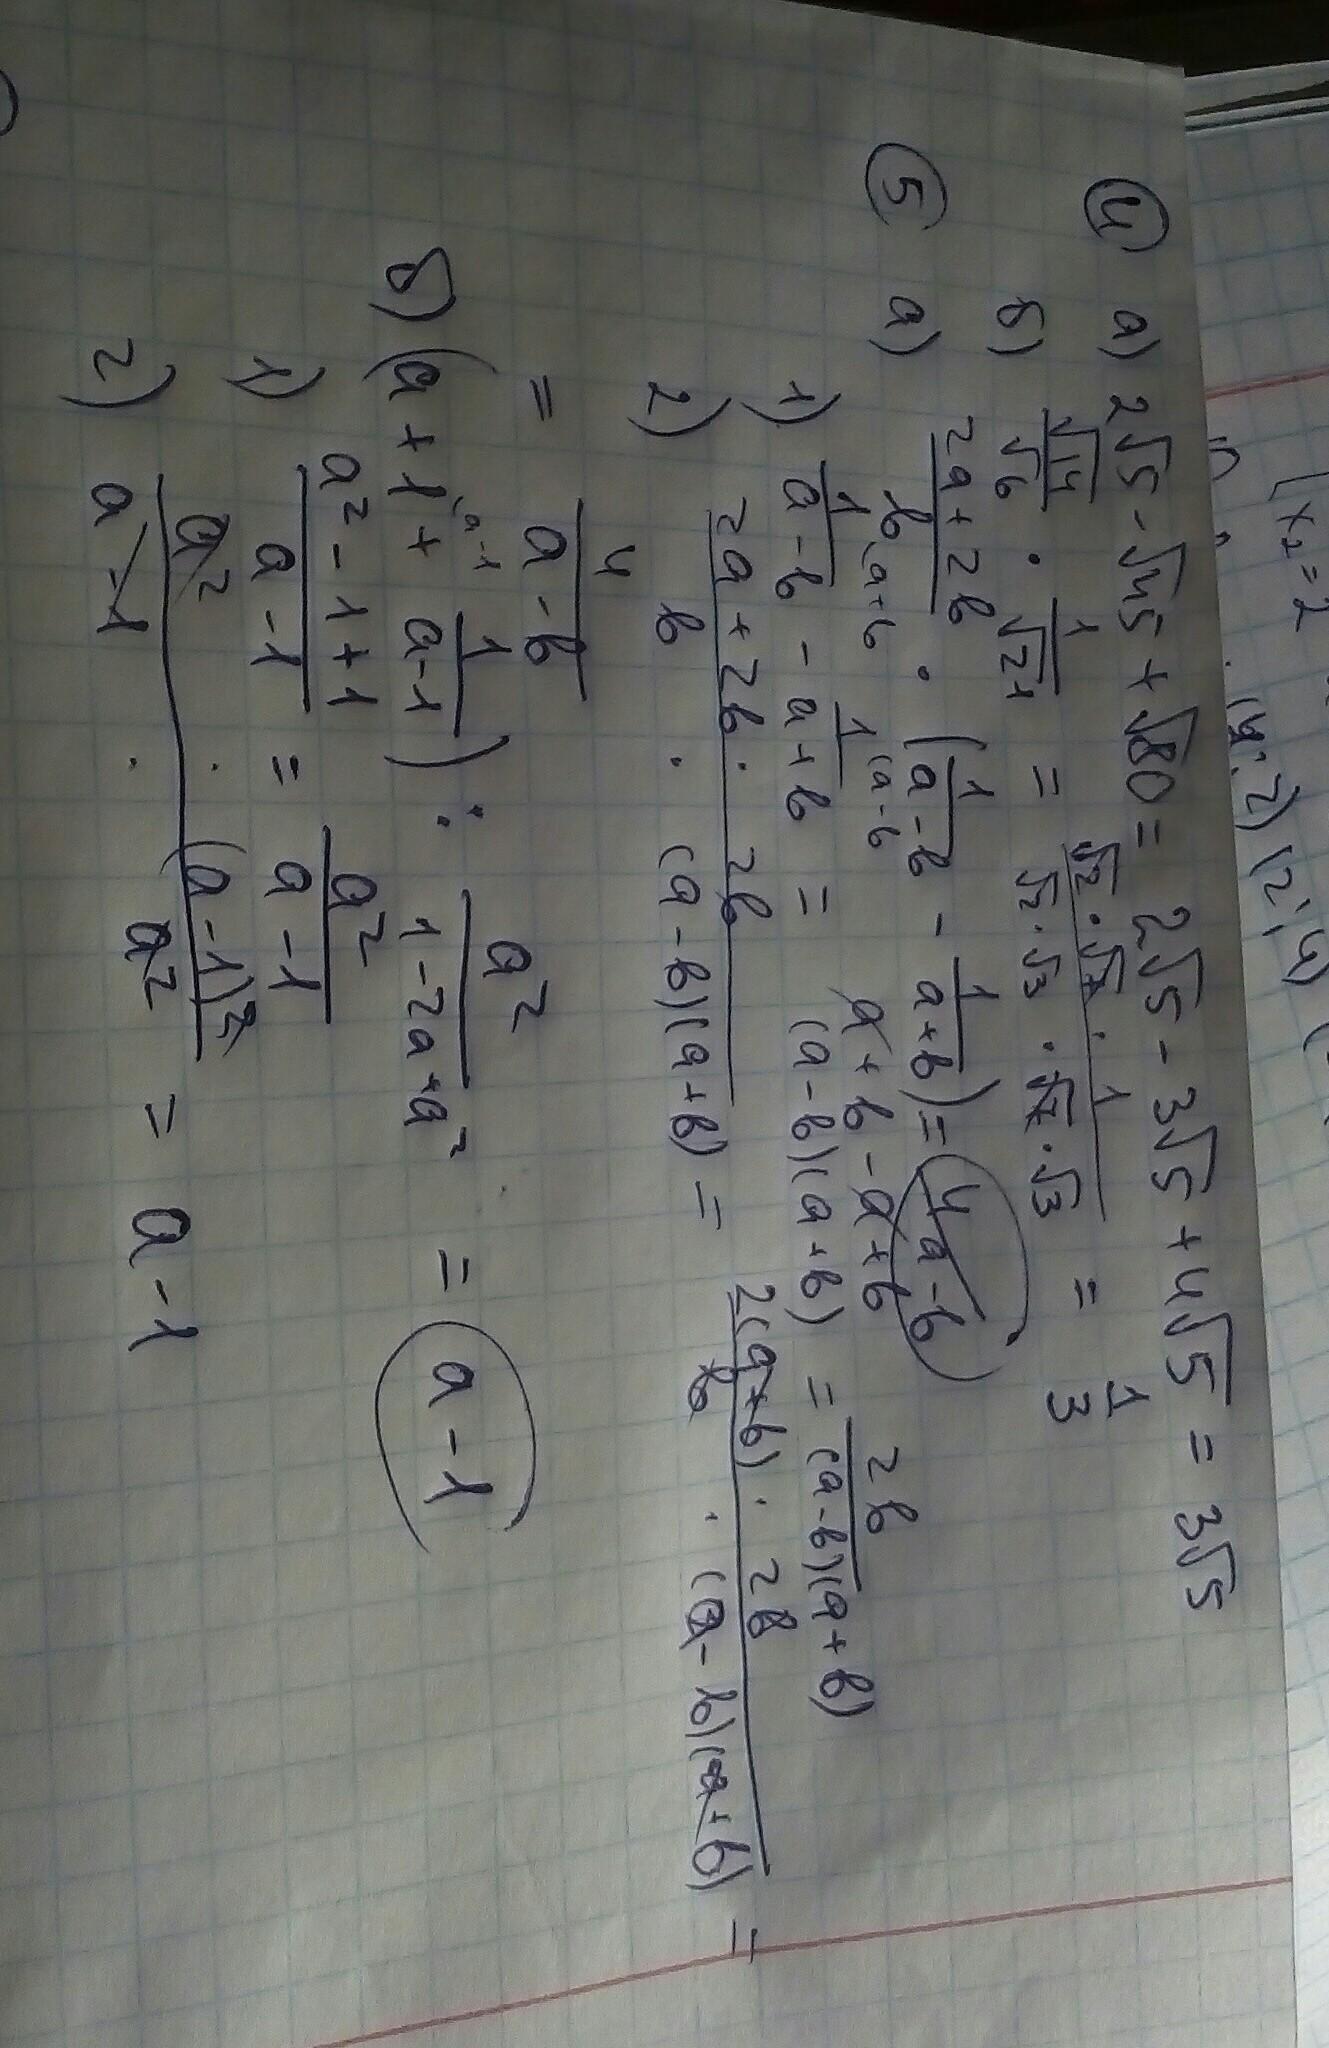 [x₂=2
(4;2) (2;4)
④ а) 2√5 - √45 + √80 = 2√5 - 3√5 + 4√5 = 3√5
б) √14/√6 · 1/√21 = (√2·√7·1)/(√2·√3·√7·√3) = 1/3
⑤ а) (2a+2b)/b · (1/(a-b) - 1/(a+b)) = 4/(a-b)
1) 1(a+b/(a-b) - 1(a-b/(a+b) = (a+b-a+b)/((a-b)(a+b)) = 2b/((a-b)(a+b))
2) (2a+2b·2b)/(b·(a-b)(a+b)) = (2(a+b)·2b)/(b·(a-b)(a+b)) =
= 4/(a-b)
б) (a+1(a-1 + 1/(a-1)) : a²/(1-2a+a²) = a-1
1) (a²-1+1)/(a-1) = a²/(a-1)
2) (a²·(a-1)²)/(a-1·a²) = a-1